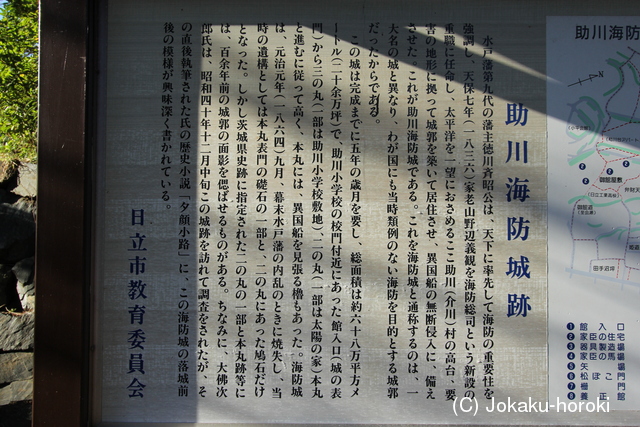 助川海防城跡
水戸藩第九代の藩主徳川斉昭公は、天下に率先して海防の重要性を
強調し、天保七年(一八三六)家老山野辺義観を海防総司という新設の
重職に任命し、太平洋を一望におさめるここ助川(介川)村の高台、要
害の地形に拠って城郭を築いて居住させ、異国船の無断侵入に、備え
させた。これが助川海防城である。これを海防城と通称するのは、一
大名の城と異なり、わが国にも当時類例のない海防を目的とする城郭
だったからである。
この城は完成までに五年の歳月を要し、総面積は約六十八万平方メ
ートル(二十余万坪)で、助川小学校の校門付近にあった館入口(城の表
門)から三の丸(一部は助川小学校敷地)、二の丸(一部は太陽の家)本丸
と進むに従って高く、本丸には、異国船を見張る櫓もあった。海防城
は、元治元年(一八六四)九月、幕末水戸藩の内乱のときに焼失し、当
時の遺構としては本丸表門の礎石の一部と、二の丸にあった鳩石だけ
となった。しかし茨城県史跡に指定された二の丸の一部と本丸跡等に
は、百余年前の城郭の面影を偲ばせるものがある。ちなみに、大佛次
郎氏は、昭和四十年十二月中旬この城跡を訪れて調査をされたが、そ
の直後執筆された氏の歴史小説「夕顔小路」に、この海防城の落城前
後の模様が興味深く書かれている。
日立市教育委員会
助川海防
御殿屋敷
田手沼坪
1 館入口
2 家臣の住宅
3 器具製造場
4 家臣の馬場
5 矢場
6 松ぼこ門
7 柵門
8 養正館
(C) Jokaku-horoki